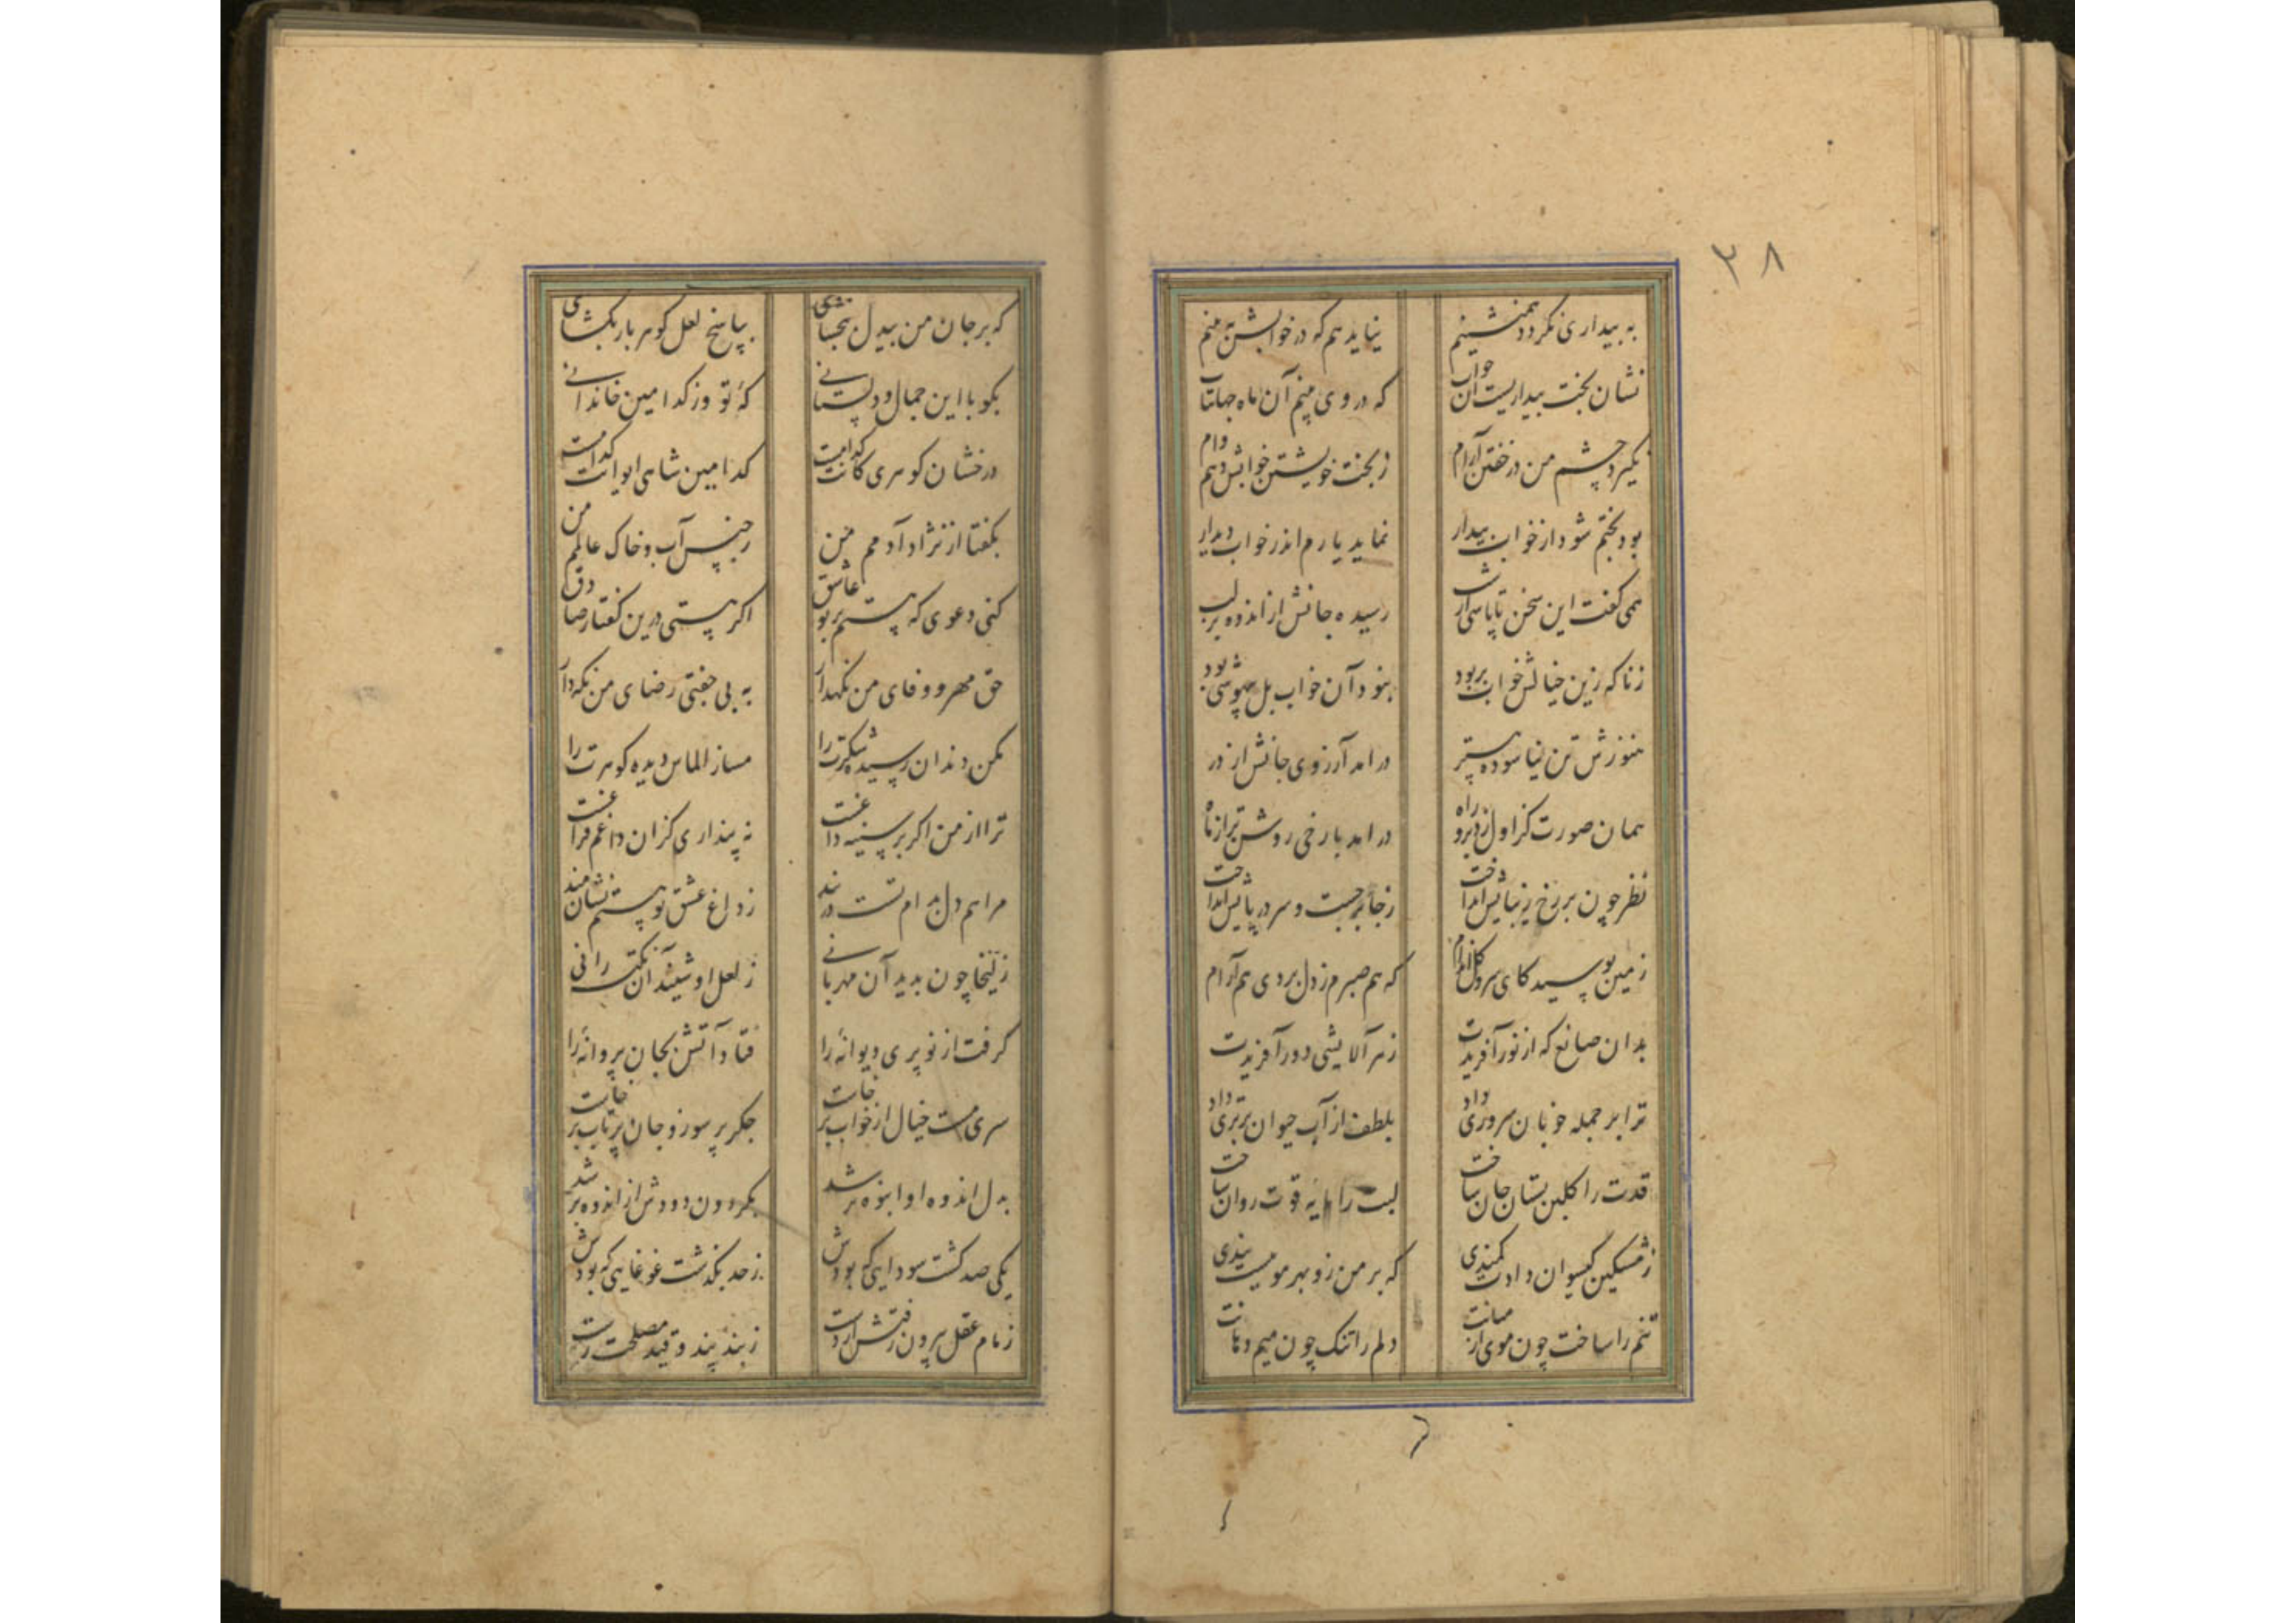 ۳۸
به بیداری نکردد همنشینم نیاید هم که در خوابش به منم
نشان بخت بیداریست آن خواب که در وی بینم آن ماه جهانتاب
نگیرد چشم من در خفتن آرام ز بخت خویشتن خوابش دهم وام
بود بختم شود از خواب بیدار نماید یارم اندر خواب دیدار
همی گفت این سخن تا پاسی از شب رسیده جانش از اندوه بر لب
زناکه زین خیالش خواب بربود نبود آن خواب بل بیهوشی بود
هنوزش تن نیاسوده به بستر درامد آرزوی جانش از در
همان صورت کز اول زد برو راه درامد با رخی روشن تر از ماه
نظر چون بر رخ زیبایش انداخت ز جا برجست و سر در پایش انداخت
زمین بوسید کای سرو گل اندام که هم صبرم ز دل بردی هم آرام
بدان صانع که از نور آفریدت ز هر آلایشی دور آفریدت
ترا بر جمله خوبان سروری داد بلطف از آب حیوان برتری داد
قدت را گلبن بستان جان ساخت لبت را مایه قوت روان ساخت
ز مشکین گیسوان دادت کمندی که بر من زو بهر موییست بندی
تنم را ساخت چون موی از میانت دلم را تنک چون میم دهانت
که بر جان من بیدل ببخشای بپاسخ لعل گوهربار بکشای
بکو با این جمال و دلستانی که تو وز کدامین خاندانی
درخشان گوهری کانت کدامست کدامین شاهی ایوانت کدامست
بگفتا از نژاد آدمم من ز جنس آب و خاک عالمم من
کنی دعوی که هستم بر تو عاشق اگر هستی درین گفتار صادق
حق مهر و وفای من نگهدار به بی جفتی رضای من نگهدار
مکن دندان رسیده شکرت را مساز الماس دیده گوهرت را
ترا از من اگر بر سینه داغست نه پنداری کزان داغم فراغست
مرا هم دل بدام تست در بند ز داغ عشق تو هستم نشانمند
زلیخا چون بدید آن مهربانی ز لعل او شنید آن نکته رانی
گرفت از نو پری دیوانه را فتاد آتش بجان پروانه را
سری مست خیال از خواب برخاست جگر پر سوز و جان پر تاب برخاست
به دل اندوه او انبوه تر شد بگردون دودش از اندوه بر شد
یکی صد گشت سودایی که بودش ز حد بگذشت غوغایی که بودش
زمام عقل بیرون رفتش از دست ز بند پند و قید مصلحت رست